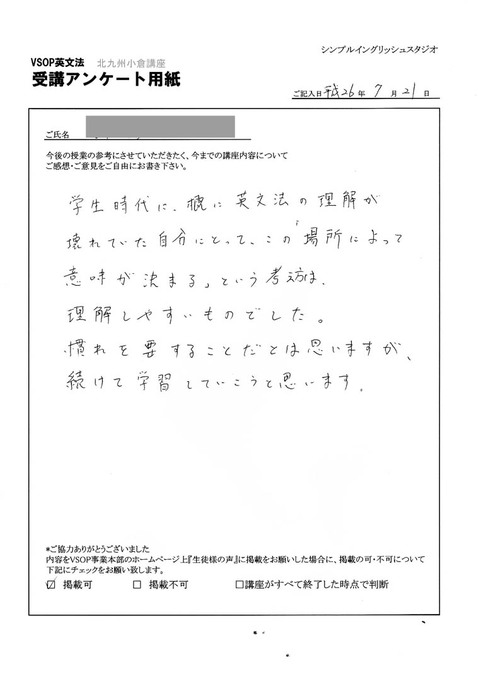 シンプルイングリッシュスタジオ
VSOP英文法 北九州小倉講座
受講アンケート用紙
ご記入日 平成26年 7月 21日
ご氏名
今後の授業の参考にさせていただきたく、今までの講座内容について
ご感想・ご意見をご自由にお書き下さい。
学生時代に、既に英文法の理解が
壊れていた自分にとって、この「場所によって
意味が決まる」という考え方は、
理解しやすいものでした。
慣れを要することだとは思いますが、
続けて学習していこうと思います。
*ご協力ありがとうございました
内容をVSOP事業本部のホームページ上『生徒様の声』に掲載をお願いした場合に、掲載の可・不可について
下記にチェックをお願い致します。
☑ 掲載可 □ 掲載不可 □講座がすべて終了した時点で判断